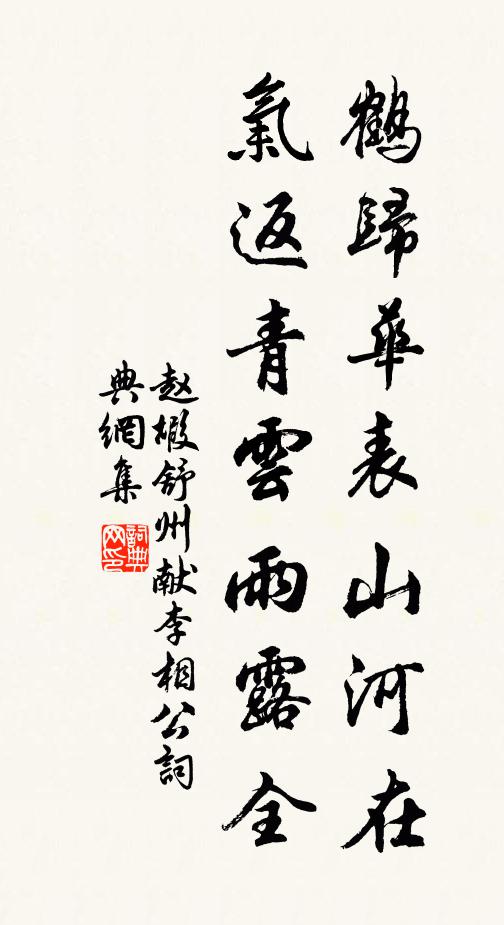 鶴歸華表山河在
氣返青雲雨露全
赵嘏舒州献李相公詞
典網集
詞典网印